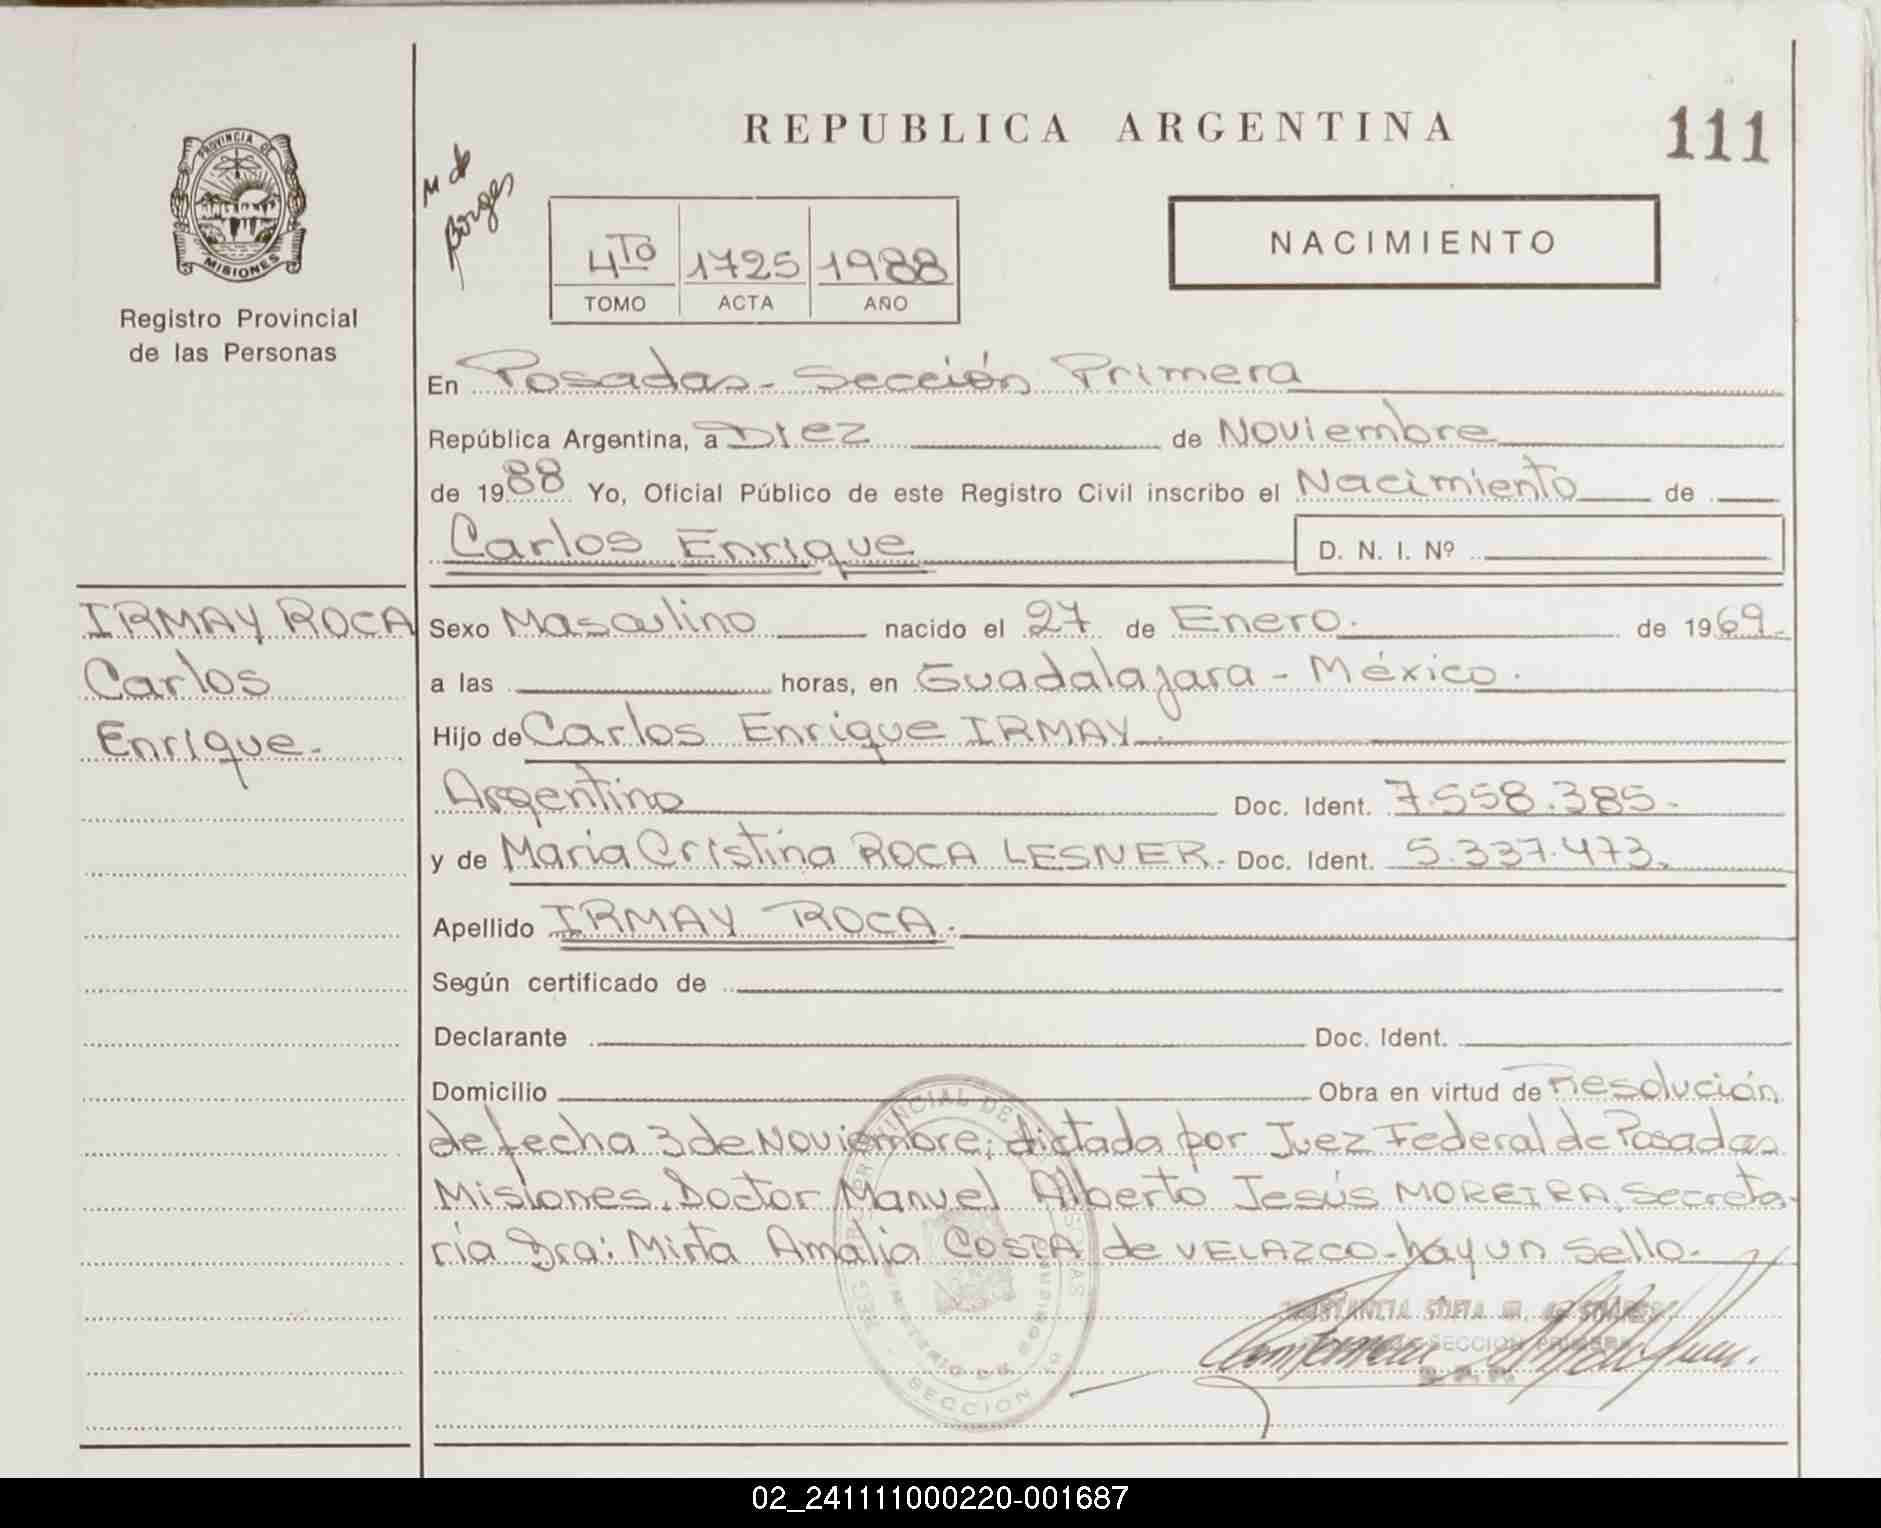 REPUBLICA ARGENTINA
111
PROVINCIA DE
MISIONES
Registro Provincial
de las Personas
M de
Borges
4TO 1725 1988
TOMO ACTA AÑO
NACIMIENTO
En Posadas - Sección Primera
República Argentina, a Diez de Noviembre
de 1988 Yo, Oficial Público de este Registro Civil inscribo el Nacimiento de
Carlos Enrique D. N. I. Nº
IRMAY ROCA
Carlos
Enrique.
Sexo Masculino nacido el 27 de Enero. de 1969.
a las horas, en Guadalajara - México.
Hijo de Carlos Enrique IRMAY.
Argentino Doc. Ident. 7.558.385.
y de Maria Cristina ROCA LESNER. Doc. Ident. 5.337.473.
Apellido IRMAY ROCA.
Según certificado de
Declarante Doc. Ident.
Domicilio Obra en virtud de Resolución
de fecha 3 de Noviembre; dictada por Juez Federal de Posadas
Misiones. Doctor Manuel Alberto Jesús MOREIRA, Secreta-
ria Dra: Mirta Amalia COSTA de VELAZCO - hay un sello.
SECCION PRIMERA
SECCION 1º
02_241111000220-001687